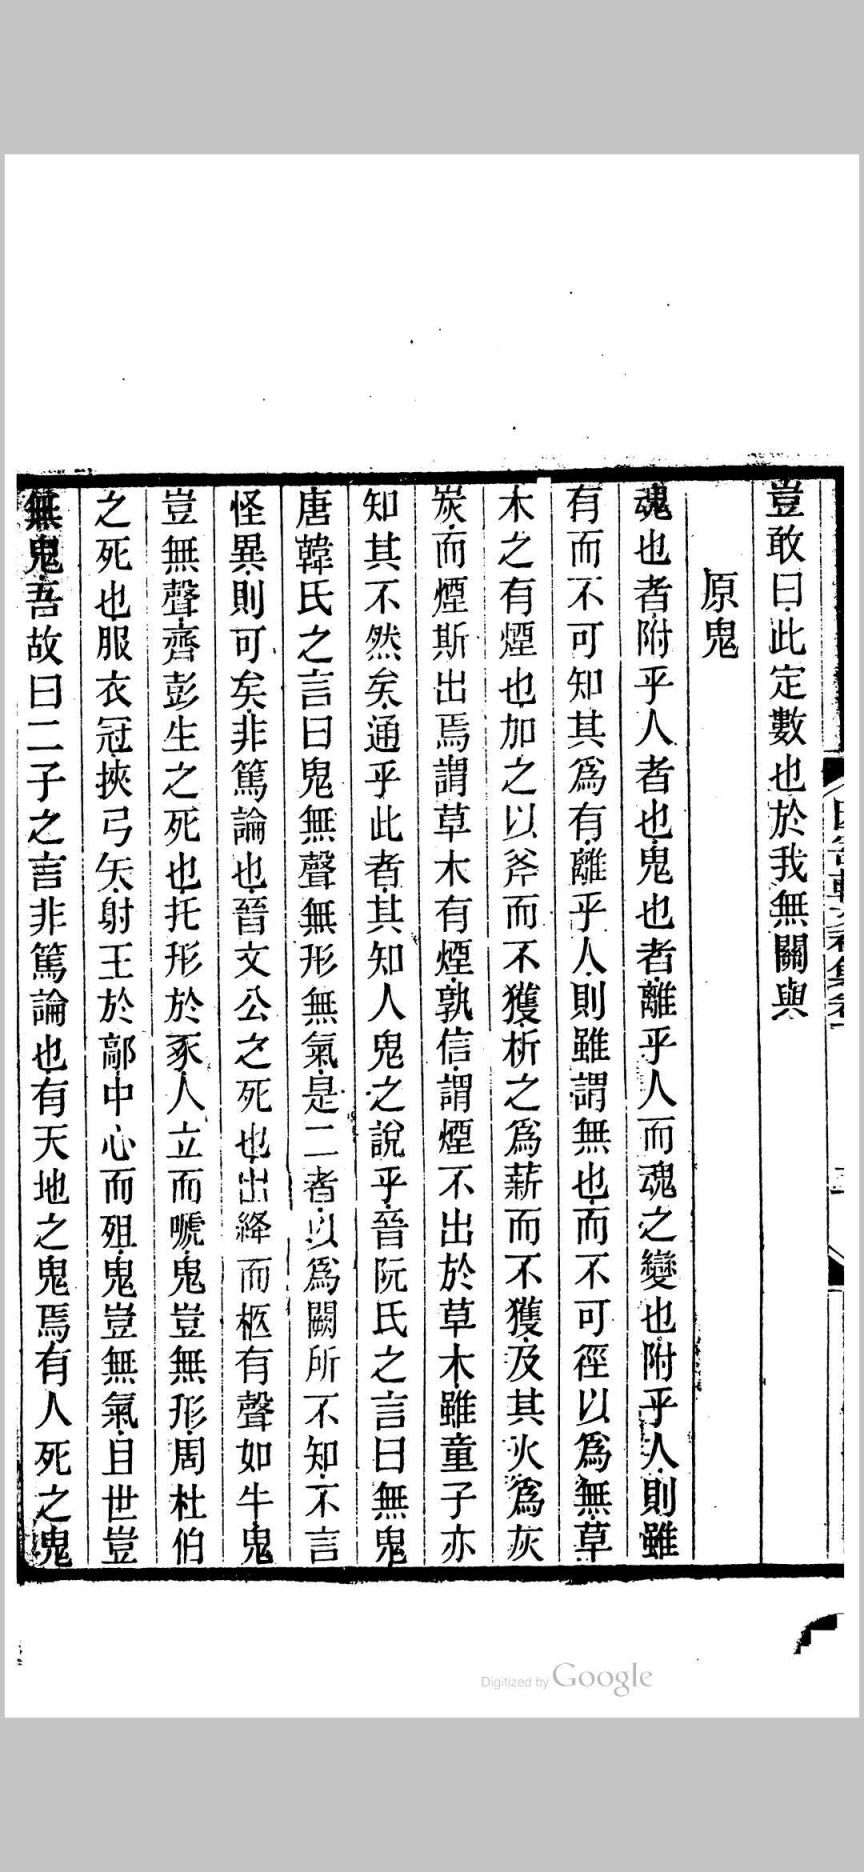 豈敢曰此定數也於我無關與
原鬼
魂也者附乎人者也鬼也者離乎人而魂之變也附乎人則雖
有而不可知其爲有離乎人則雖謂無也而不可徑以爲無草
木之有煙也加之以斧而不獲析之爲薪而不獲及其火爲灰
炭而煙斯出焉謂草木有煙孰信謂煙不出於草木雖童子亦
知其不然矣通乎此者其知人鬼之說乎晉阮氏之言曰無鬼
唐韓氏之言曰鬼無聲無形無氣是二者以爲闕所不知不言
怪異則可矣非篤論也晉文公之死也出絳而柩有聲如牛鬼
豈無聲齊彭生之死也托形於豕人立而嗁鬼豈無形周杜伯
之死也服衣冠挾弓矢射王於鄗中心而殂鬼豈無氣且世豈
無鬼吾故曰二子之言非篤論也有天地之鬼焉有人死之鬼
Digitized by Google